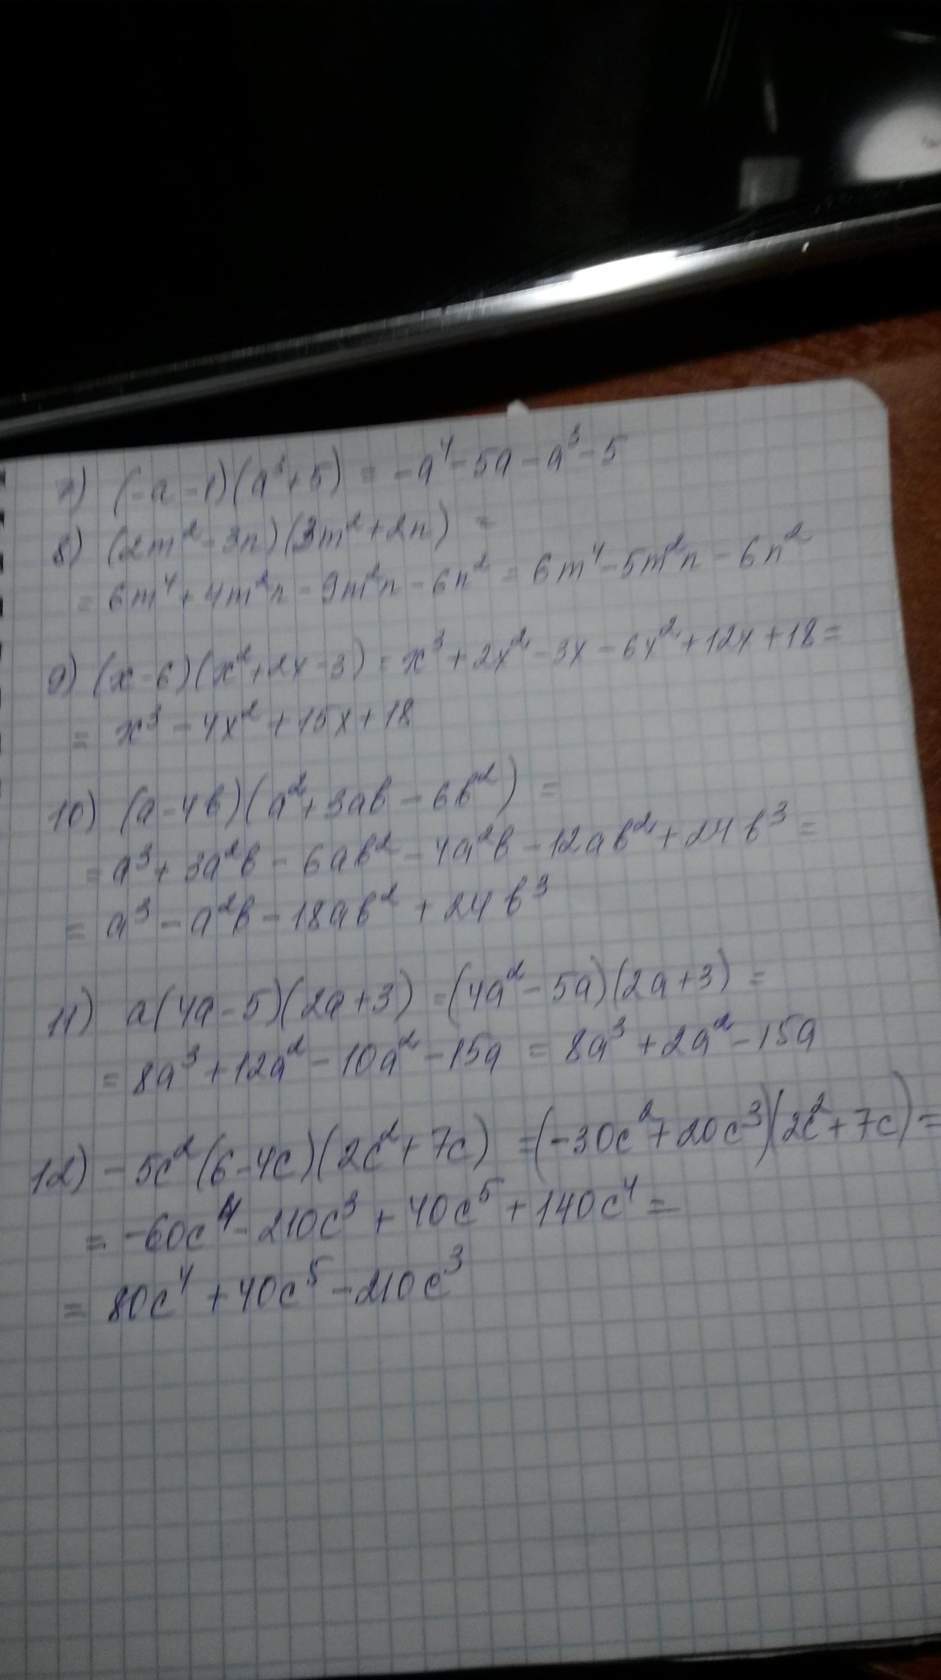 7) (-a-1)(a³+5) = -a⁴-5a-a³-5
8) (2m²-3n)(3m²+2n) =
= 6m⁴+4m²n-9m²n-6n² = 6m⁴-5m²n-6n²
9) (x-6)(x²+2x-3) = x³+2x²-3x-6x²+12x+18=
= x³-4x²+15x+18
10) (a-4b)(a²+3ab-6b²) =
= a³+3a²b-6ab²-4a²b-12ab²+24b³=
= a³-a²b-18ab²+24b³
11) a(4a-5)(2a+3) = (4a²-5a)(2a+3) =
= 8a³+12a²-10a²-15a = 8a³+2a²-15a
12) -5c²(6-4c)(2c²+7c) = (-30c²+20c³)(2c²+7c)=
= -60c⁴-210c³+40c⁵+140c⁴=
= 80c⁴+40c⁵-210c³